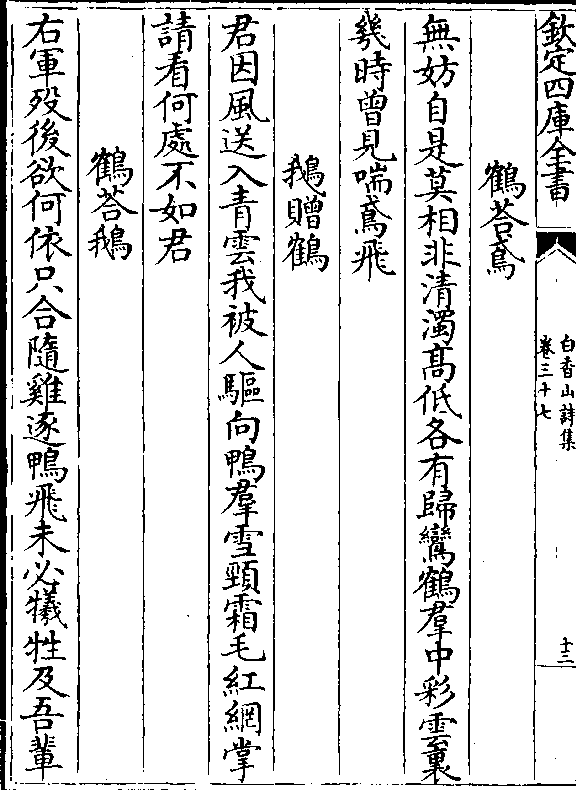 欽定四庫全書
白香山詩集
卷三十七
十三
鶴荅鳶
無妨自是莫相非清濁高低各有歸鸞鶴羣中彩雲裏
幾時曾見喘鳶飛
鵝贈鶴
君因風送入青雲我被人驅向鴨羣雪頸霜毛紅網掌
請看何處不如君
鶴荅鵝
右軍歿後欲何依只合隨雞逐鴨飛未必犧牲及吾輩